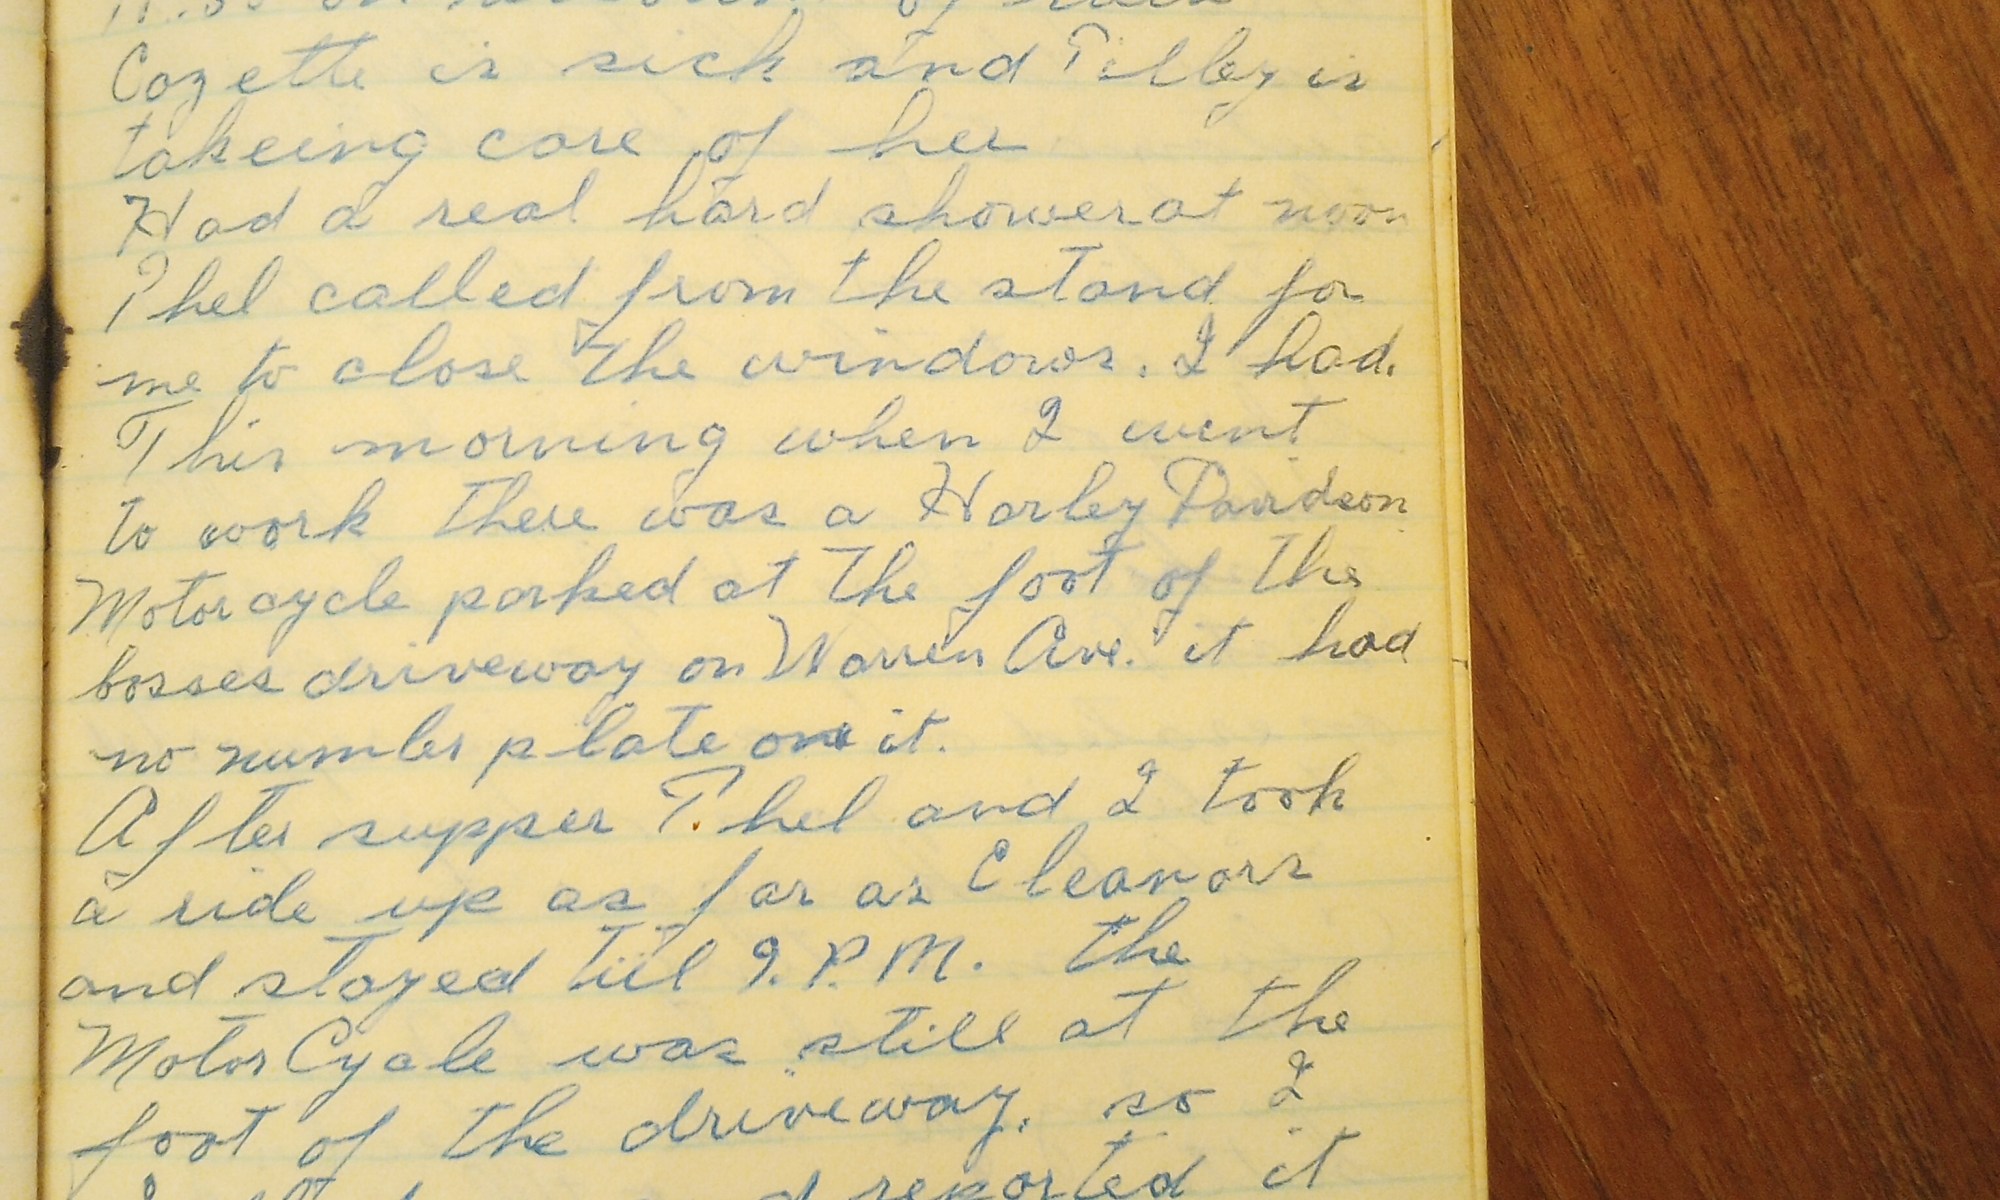 Cozette is sick and Tilley is
takeing care of her
Had a real hard shower at noon
Thel called from the stand for
me to close the windows. I had.
This morning when I went
to work there was a Harley Davidson
Motorcycle parked at the foot of the
bosses driveway on Warren Ave. it had
no number plate on it.
After supper Thel and I took
a ride up as far as Eleanors
and stayed till 9. P.M. the
Motor Cycle was still at the
foot of the driveway. so I
reported it